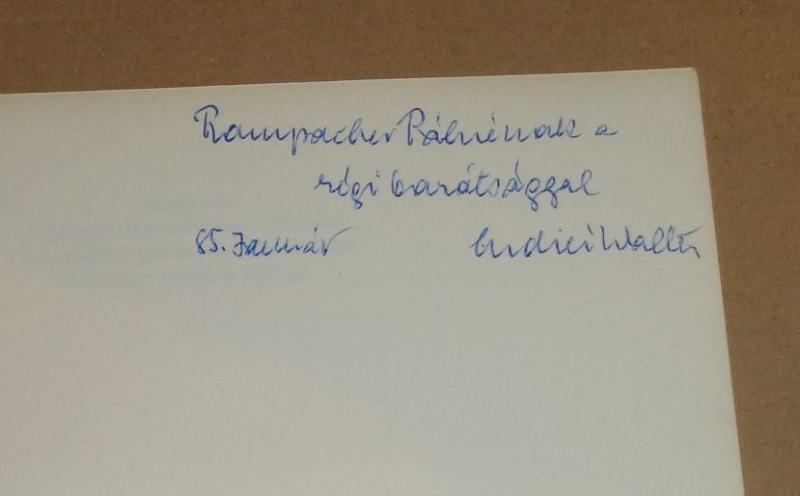 Rampacher Pálnénak a
régi barátsággal
85. Január Endrei Walter